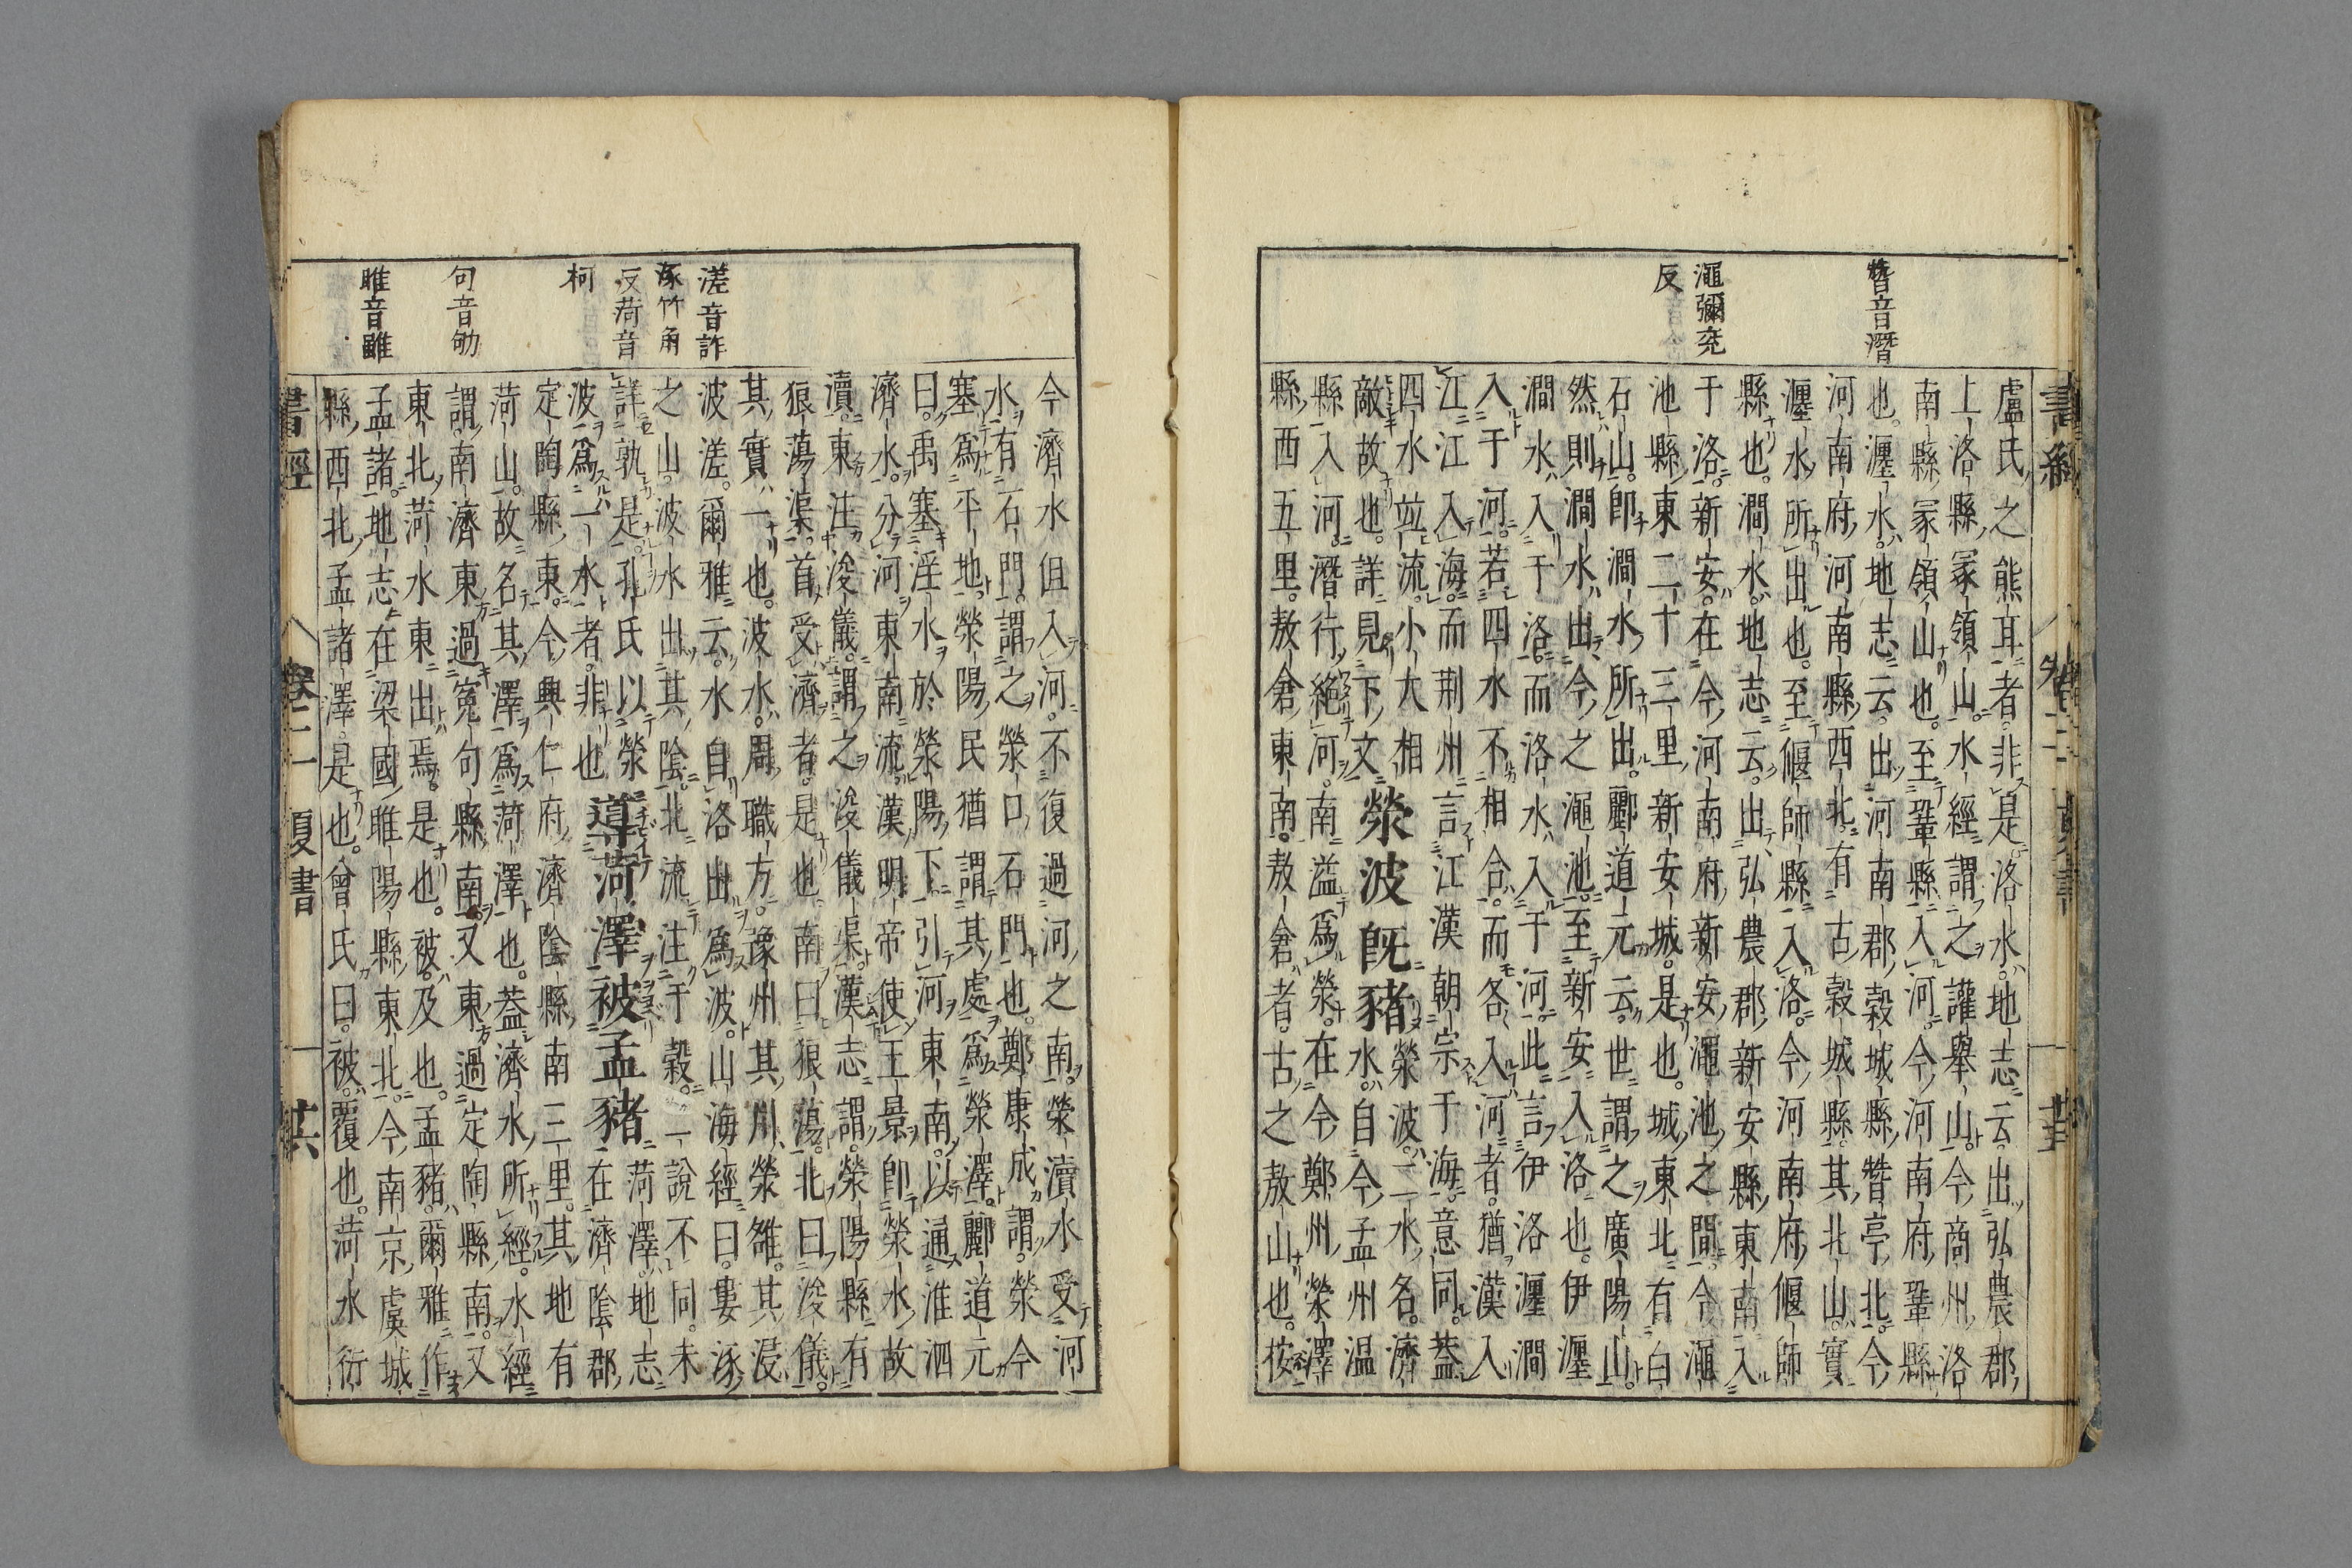 朁音潛
澠彌兖
反
盧氏之熊耳者非是洛水地志云出弘農郡
上洛縣冡領山水經謂之讙舉山今商州洛
南縣冡領山也至鞏縣入河今河南府鞏縣
也瀍水地志云出河南郡穀城縣朁亭北今
河南府河南縣西北有古穀城縣其北山實
瀍水所出也至偃師縣入洛今河南府偃師
縣也澗水地志云出弘農郡新安縣東南入
于洛新安在今河南府新安澠池之間今澠
池縣東二十三里新安城是也城東北有白
石山即澗水所出酈道元云世謂之廣陽山
然則澗水出今之澠池至新安入洛也伊瀍
澗水入于洛而洛水入于河此言伊洛瀍澗
入于河若四水不相合而各入河者猶漢入
江江入海而荆州言江漢朝宗于海意同蓋
四水竝流小大相
敵故也詳見下文滎波既豬滎波二水名濟
水自今孟州温
縣入河潛行絕河南溢爲滎在今鄭州滎澤
縣西五里敖倉東南敖倉者古之敖山也按
書經 卷二 夏書
溠音詐
涿竹角
反菏音
柯
句音劬
睢音雖
今濟水但入河不復過河之南滎瀆水受河
水有石門謂之滎口石門也鄭康成謂滎今
塞爲平地滎陽民猶謂其處爲滎澤酈道元
曰禹塞淫水於滎陽下引河東南以通淮泗
濟水分河東南流漢明帝使王景即滎水故
瀆東注浚儀謂之浚儀渠漢志謂滎陽縣有
狼蕩渠首受濟者是也南曰狼蕩北曰浚儀
其實一也波水周職方豫州其川滎雒其浸
波溠爾雅云水自洛出爲波山海經曰婁涿
之山波水出其陰北流注于穀二說不同未
詳孰是孔氏以滎
波爲一水者非也導菏澤被孟豬菏澤地志
在濟陰郡
定陶縣東今興仁府濟陰縣南三里其地有
菏山故名其澤爲菏澤也蓋濟水所經水經
謂南濟東過寃句縣南又東過定陶縣南又
東北菏水東出焉是也被及也孟豬爾雅作
孟諸地志在梁國睢陽縣東北今南京虞城
縣西北孟諸澤是也曾氏曰被覆也菏水衍
書經 卷二 夏書